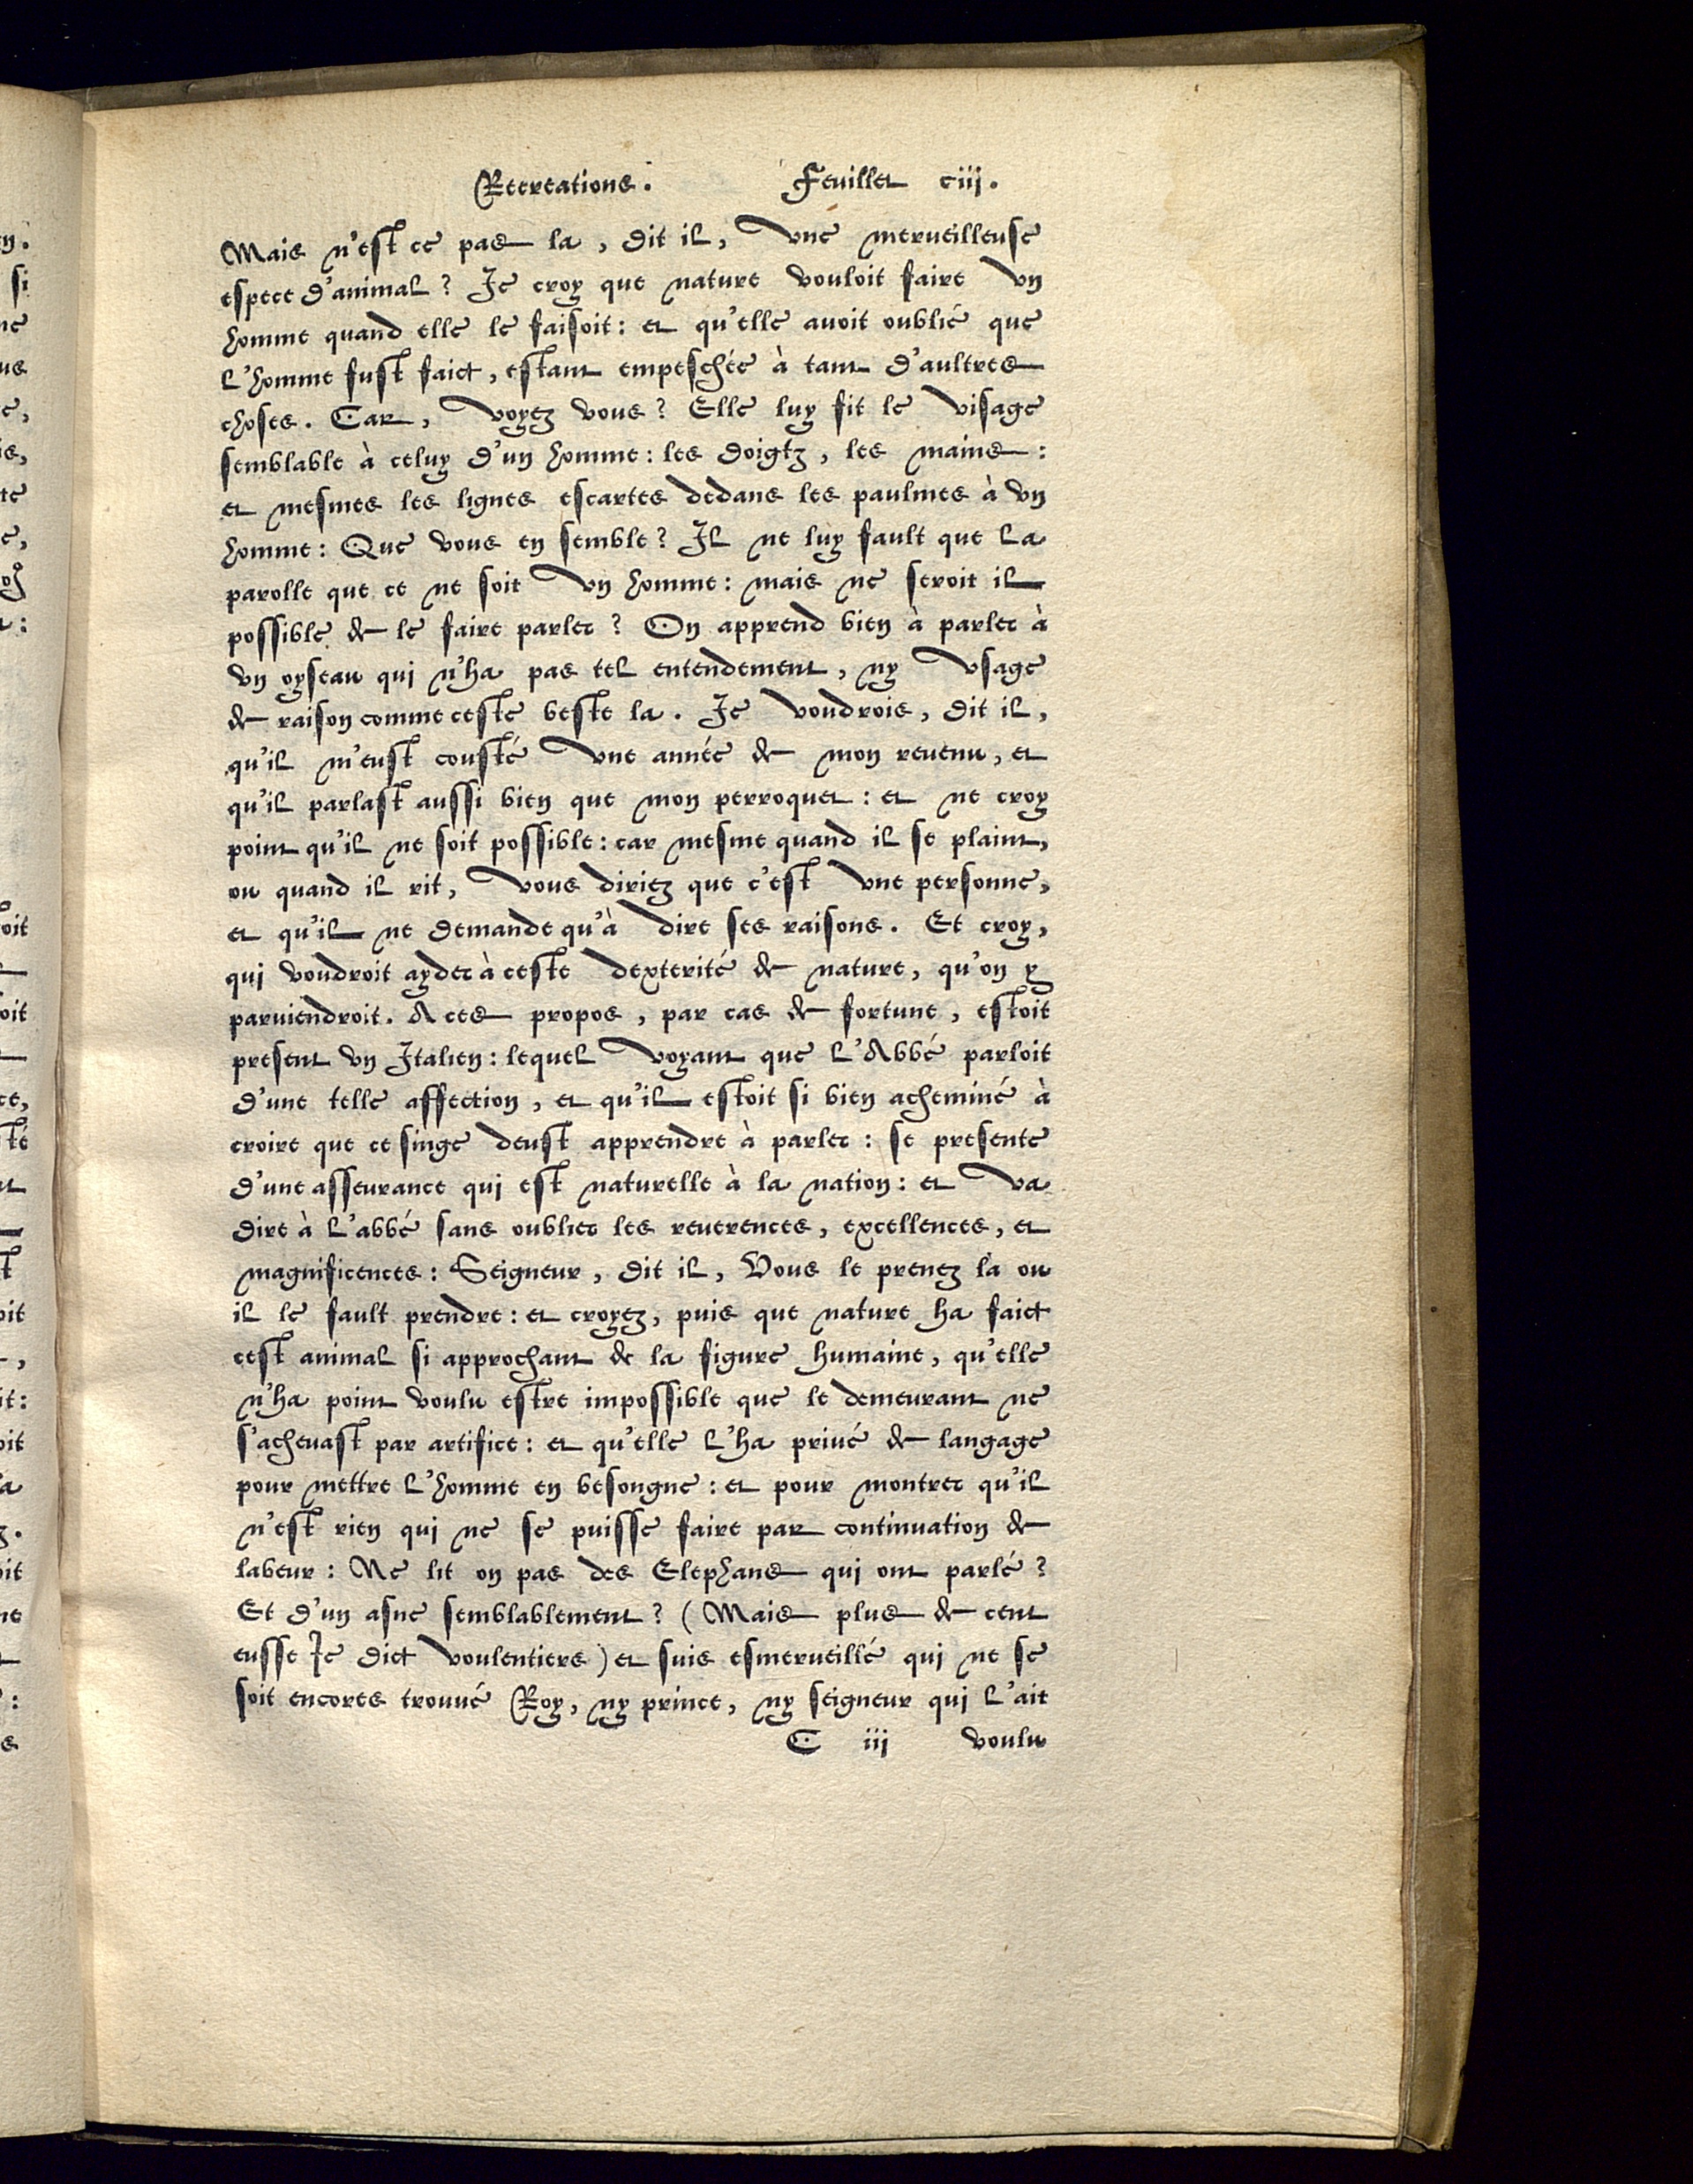 Recreations. Feuillet ciij.
Mais n'est ce pas la, dit il, vne merueilleuse
espece d'animal? Je croy que nature vouloit faire vn
homme quand elle le faisoit: et qu'elle auoit oublié que
l'homme fust faict, estant empeschée à tant d'aultres
choses. Car, voyez vous? Elle luy fit le visage
semblable à celuy d'un homme: les doigtz, les mains:
et mesmes les lignes escartes dedans les paulmes à vn
homme: Que vous en semble? Il ne luy fault que la
parolle que ce ne soit vn homme: mais ne seroit il
possible de le faire parler? On apprend bien à parler à
vn oyseau qui n'ha pas tel entendement, ny vsage
de raison comme ceste beste la. Je voudrois, dit il,
qu'il m'eust cousté vne année de mon reuenu, et
qu'il parlast aussi bien que mon perroquet: et ne croy
point qu'il ne soit possible: car mesme quand il se plaint,
ou quand il rit, vous diriez que c'est vne personne,
et qu'il ne demande qu'à dire ses raisons. Et croy,
qui voudroit ayder à ceste dexterité de nature, qu'on y
paruiendroit. A ces propos, par cas de fortune, estoit
present vn Italien: lequel voyant que l'Abbé parloit
d'une telle affection, et qu'il estoit si bien acheminé à
croire que ce singe deust apprendre à parler: se presente
d'une asseurance qui est naturelle à la nation: et va
dire à l'abbé sans oublier les reuerences, excellences, et
magnificences: Seigneur, dit il, Vous le prenez là ou
il le fault prendre: et croyez, puis que nature ha faict
cest animal si approchant de la figure humaine, qu'elle
n'ha point voulu estre impossible que le demeurant ne
s'acheuast par artifice: et qu'elle l'ha priué de langage
pour mettre l'homme en besongne: et pour montrer qu'il
n'est rien qui ne se puisse faire par continuation de
labeur: Ne lit on pas des Elephans qui ont parlé?
Et d'un asne semblablement? (Mais plus de cent
eusse Je dict voulentiers) et suis esmerueillé qui ne se
soit encores trouué Roy, ny prince, ny seigneur qui l'ait
C iij voulu